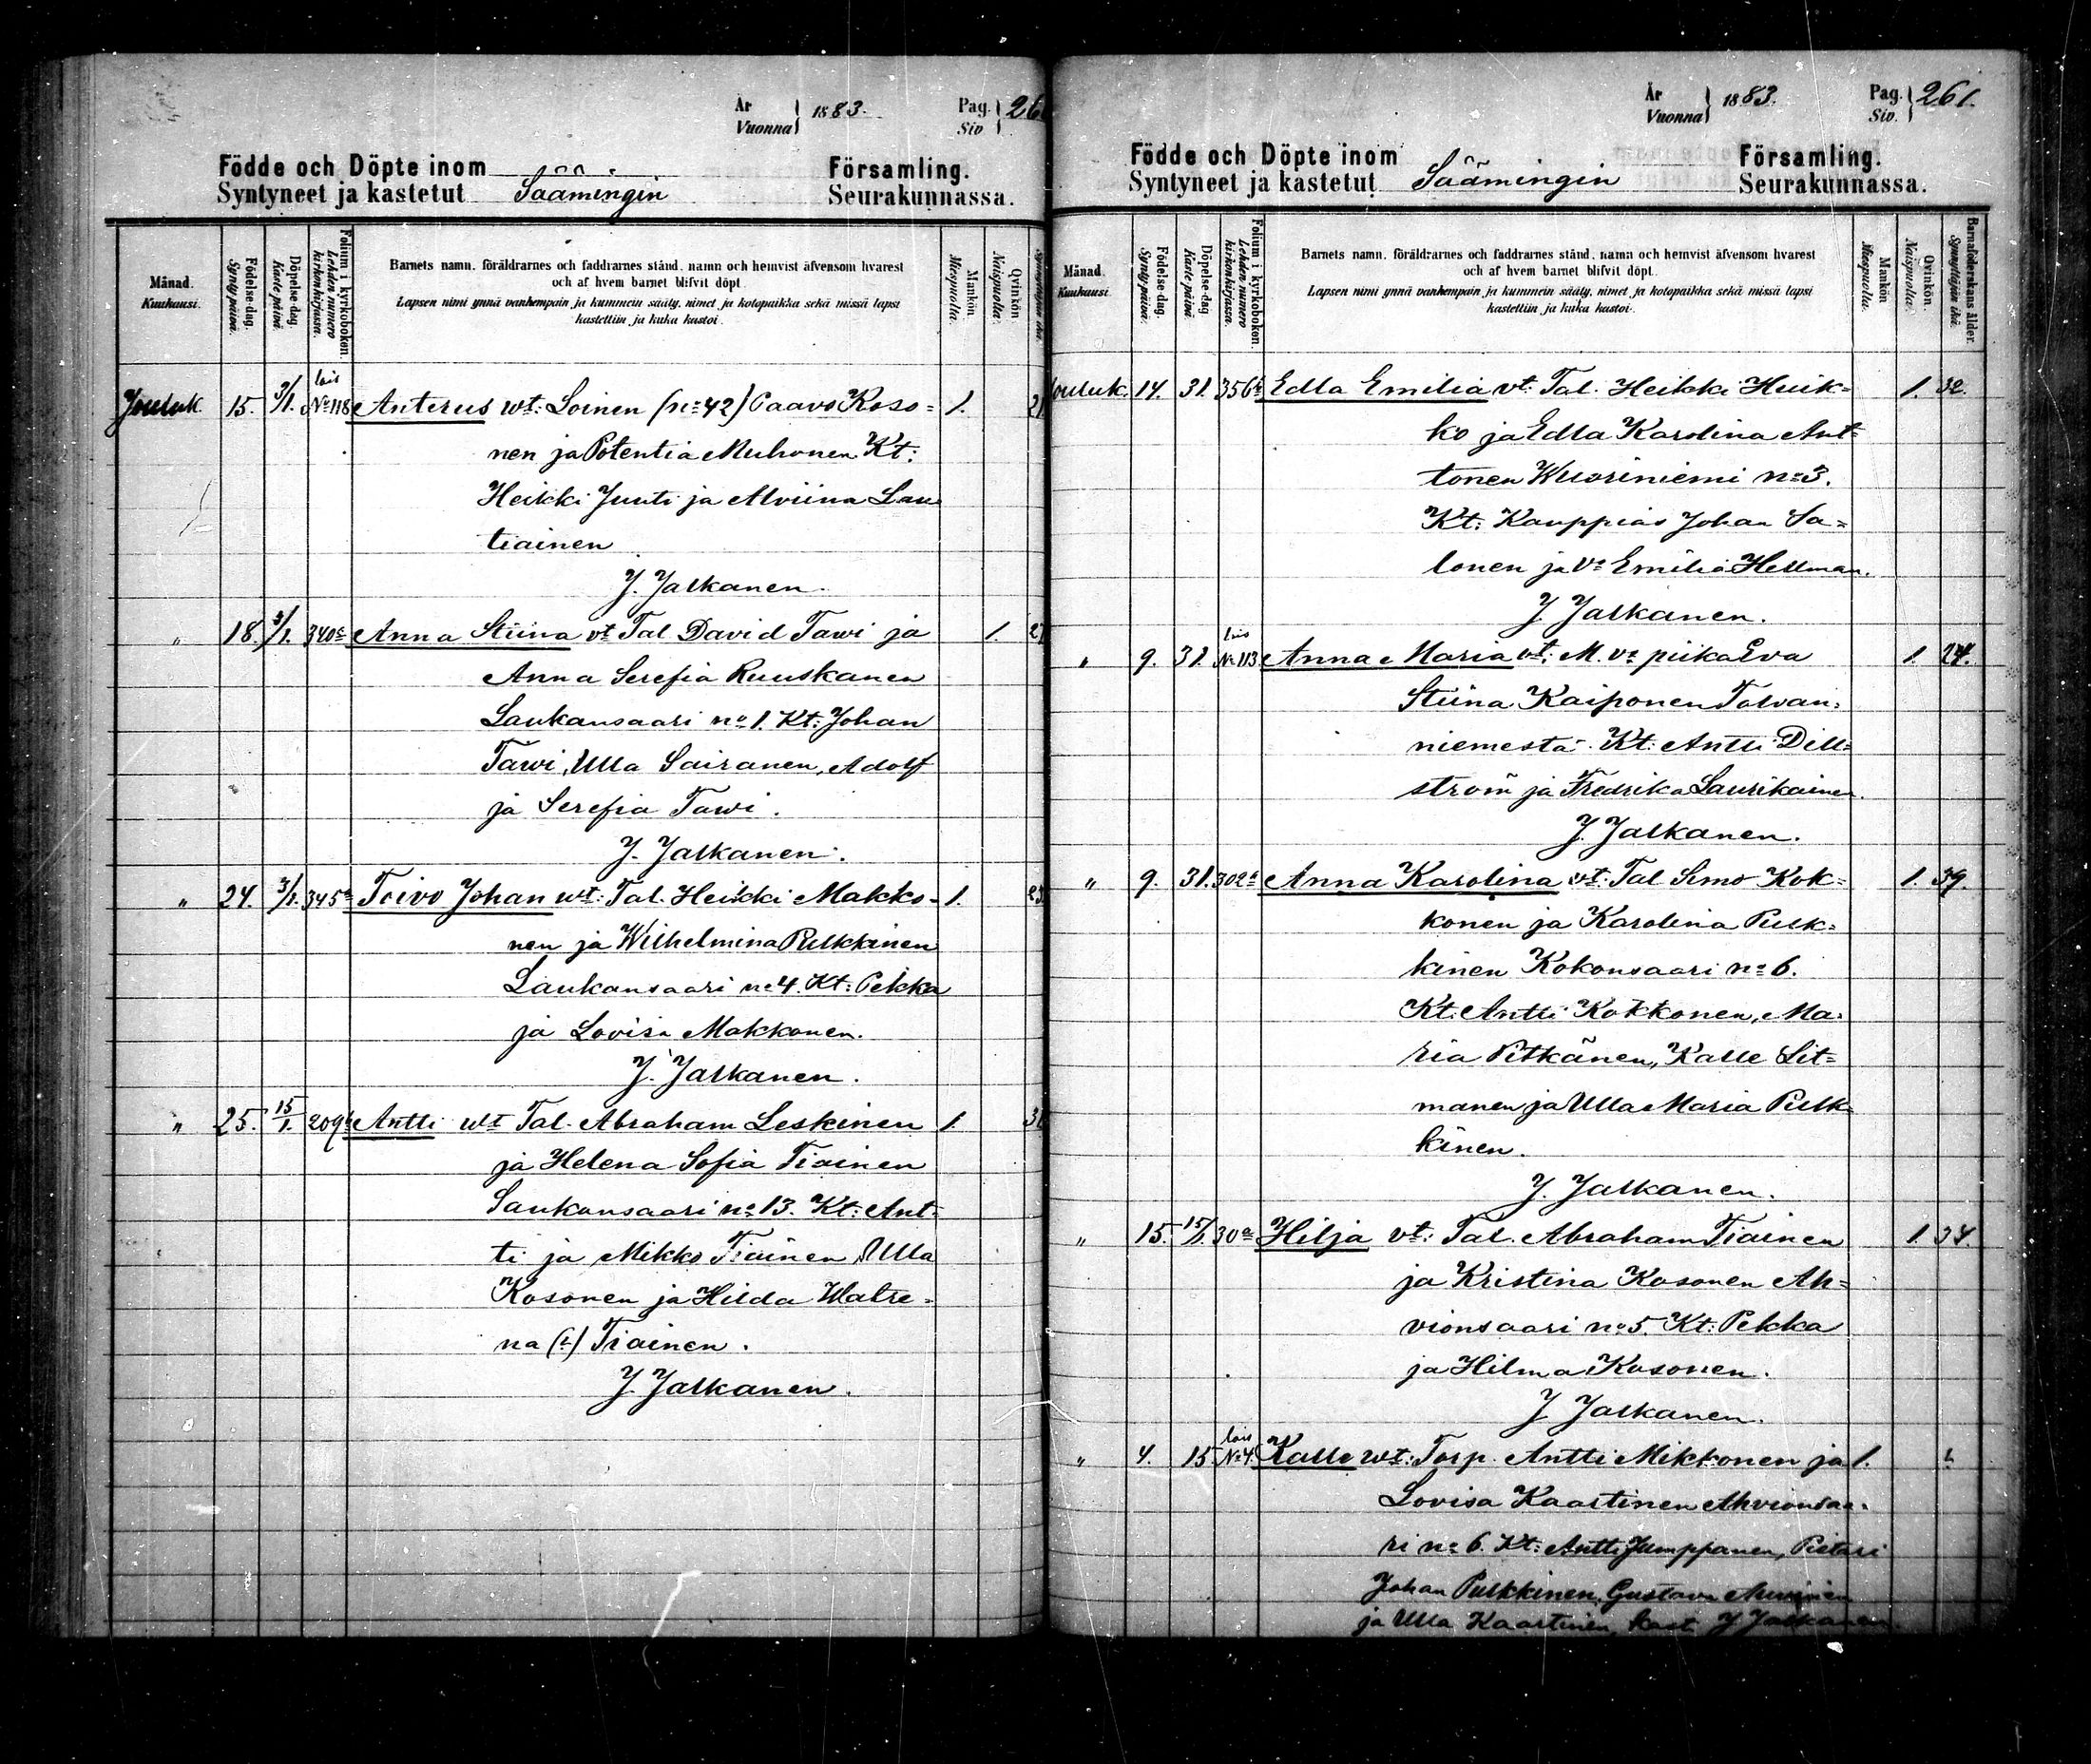 År
Vuonna } 1883.
Pag.
Siv } 26
Födde och Döpte inom Församling.
Syntyneet ja kastetut Säämingin Seurakunnassa.
Månad. Kuukausi.
Födelse-dag. Synty päivä.
Döpelse-dag Kaste päivä
Folium i kyrkoboken. Lehden numero kirkonkirjassa.
Barnets namn, föräldrarnes och faddrarnes stånd, namn och hemvist äfvensom hvarest
och af hvem barnet blifvit döpt.
Lapsen nimi ynnä vanhempain ja kummein sääty, nimet ja kotopaikka sekä missä lapsi
kastettiin ja kuka kastoi.
Mankön Miespuolta.
Qvinkön Naispuolta.
lois
Jouluk. 15. 3/1. No 118 Anterus wt: Loinen (no 42) Paavo Koso= 1. 21
nen ja Potentia Muhonen Kt:
Heikki Juuti ja Alviina Lau
tiainen
J. Jalkanen.
" 18. 3/1. 340a Anna Stiina vt Tal David Tawi ja 1. 27
Anna Serefia Ruuskanen
Laukansaari no 1. Kt: Johan
Tawi, Ulla Sairanen, Adolf
ja Serefia Tawi.
J. Jalkanen.
" 24. 3/1. 345a Toivo Johan wt: Tal. Heikki Makko- 1. 23
nen ja Wilhelmina Pulkkinen
Laukansaari no 4. Kt: Pekka
ja Lovisa Makkonen.
J. Jalkanen.
" 25. 15/1. 209 Antti wt Tal. Abraham Leskinen 1 3
ja Helena Sofia Tiainen
Laukansaari no 13. Kt: Ant-
ti ja Mikko Tiainen, Ulla
Kosonen ja Hilda Walre-
na Tiainen.
J. Jalkanen.
År
Vuonna } 1883.
Pag.
Siv. } 261.
Födde och Döpte inom Församling.
Syntyneet ja kastetut Säämingin Seurakunnassa.
Månad. Kuukausi
Födelse-dag. Synty päivä.
Döpelse-dag Kaste päivä
Folium i kyrkoboken. Lehden numero kirkonkirjassa.
Barnets namn, föräldrarnes och faddrarnes stånd, namn och hemvist äfvensom hvarest
och af hvem barnet blifvit döpt.
Lapsen nimi ynnä vanhempain ja kummein sääty, nimet ja kotopaikka sekä missä lapsi
kastettiin ja kuka kastoi.
Mankön Miespuolta.
Qvinkön. Naispuolta.
Barnaföderskans ålder. Synnyttäjän ikä.
ouluk. 14. 31. 356 Edla Emilia vt: Tal. Heikki Huik= 1. 32.
ko ja Edla Karolina Ant=
tonen Wuoriniemi no 3.
Kt: Kauppias Johan Sa=
lonen ja va Emilia Hellman.
J Jalkanen.
lois
" 9. 31. No 113. Anna Maria vt: M. va piika Eva 1. 24.
Stiina Kaiponen Talvan=
niemestä. Kt: Antti Dill=
ström ja Fredrika Laurikainen.
J. Jalkanen.
" 9. 31. 302a Anna Karolina vt: Tal Simo Kok= 1. 39.
konen ja Karolina Pulk=
kinen Kokonsaari no 6.
Kt: Antti Kokkonen, Ma=
ria Pitkänen, Kalle Lit=
manen ja Ulla Maria Pulk=
kinen.
J. Jalkanen.
" 15. 15/1. 30a Hilja vt: Tal. Abraham Tiainen 1. 34.
ja Kristina Kosonen Ah=
vionsaari no 5. Kt: Pekka
ja Hilma Kosonen.
J Jalkanen.
lois
" 4. 15 No 4. Kalle wt: Torp. Antti Mikkonen ja 1.
Lovisa Kaartinen Ahvionsaa=
ri no 6. Kt: Antti Jumppanen, Pietari
Johan Pulkkinen, Gustava
ja Ulla Kaartinen, kast. J Jalkanen.